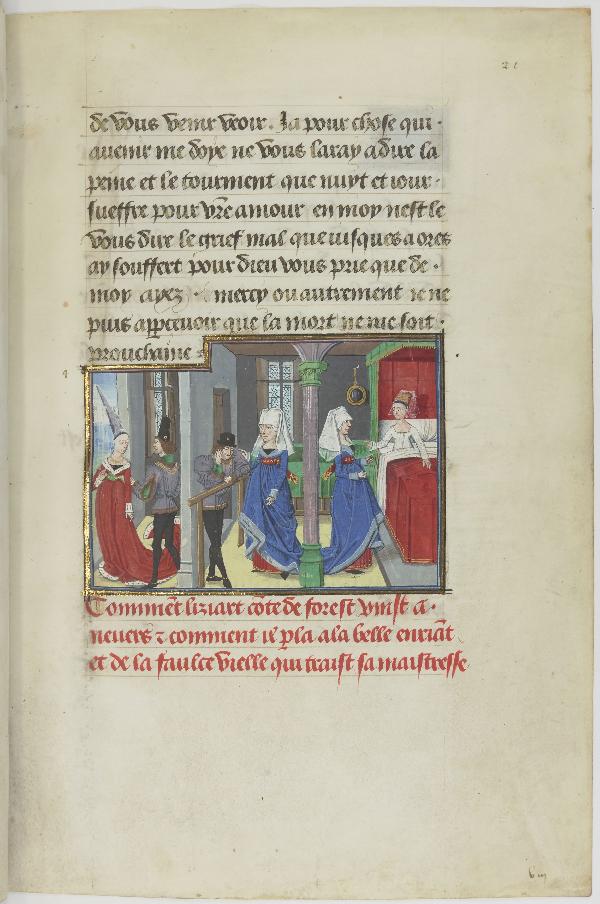 21
de vous venir veoir. Ja pour chose qui
auenir me doye ne vous laray a dire la
peine et le tourment que nuyt et iour
sueffre pour vr̃e amour en moy nest le
vous dire le grief mal que iusques a ores
ay souffert pour dieu vous prie que de
moy ayez mercy ou autrement ie ne
puis apperceuoir que la mort ne me soit
prouchaine
Comment liziart cõte de forest vinst a
neuers ⁊ comment il p̱la a la belle euriãt
et de la faulce vielle qui traist sa maistresse